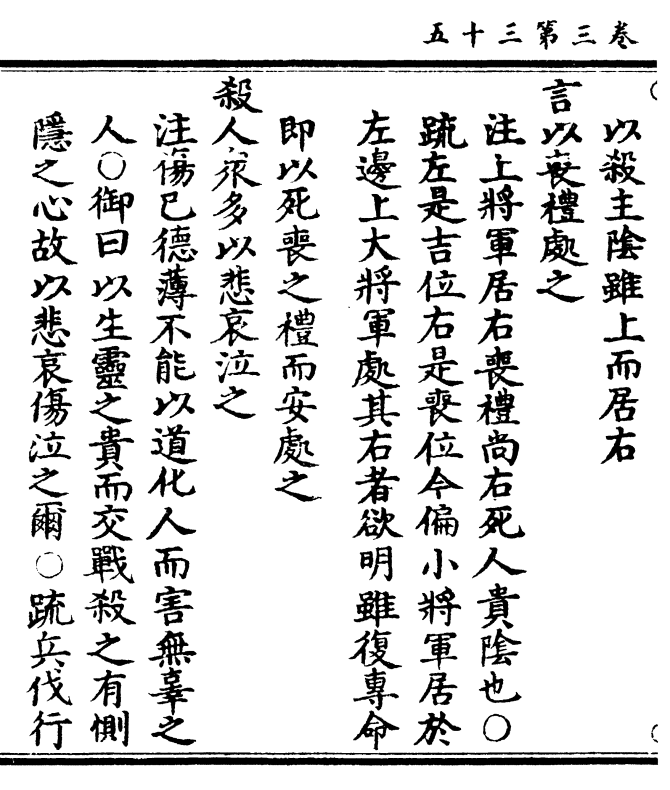 卷三第三十五
以殺主陰雖上而居右
言以喪禮處之
注上將軍居右喪禮尚右死人貴陰也〇
䟽左是吉位右是喪位今偏小將軍居於
左邊上大將軍處其右者欲明雖復專命
即以死喪之禮而安處之
殺人衆多以悲哀泣之
注傷已德薄不能以道化人而害無辜之
人〇御曰以生靈之貴而交戰殺之有惻
隱之心故以悲哀傷泣之爾〇䟽兵伐行